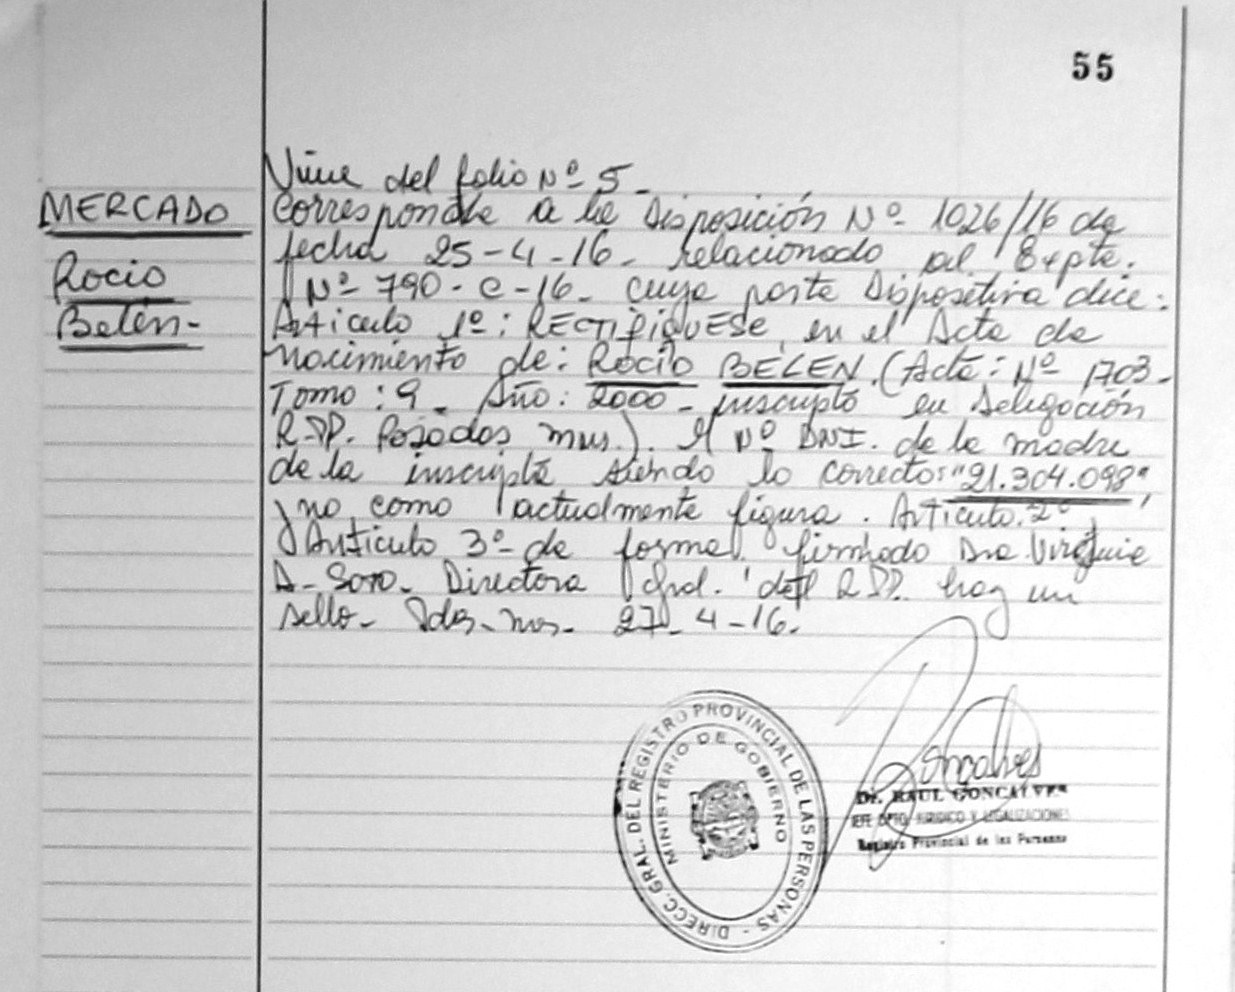 55
Viene del folio Nº 5-
MERCADO
Rocio
Belén-
Corresponde a la Disposición Nº 1026/16 de
fecha 25-4-16- relacionado al Expte.
Nº 790-C-16- cuya parte Dispositiva dice:
Articulo 1º: RECTIFIQUESE, en el Acta de
nacimiento de: ROCIO BELEN. (Acta: Nº 1703-
Tomo: 9- Año: 2000- inscripta en Delegación
R.PP. Posadas mns.). El Nº DNI. de la madre
de la inscripta siendo lo correcto: "21.304.098",
y no como actualmente figura. Articulo 2º
y Articulo 3º- de forma. firmado Dra. Virginia
A- Soto- Directora Gral. del R.PP. hay un
sello- Pdas- mns- 27-4-16.
DIRECC. GRAL. DEL REGISTRO PROVINCIAL DE LAS PERSONAS -
MINISTERIO DE GOBIERNO
Goncalves
Dr. RAUL GONCALVES
JEFE DPTO. JURIDICO Y LEGALIZACIONES
Registro Provincial de las Personas